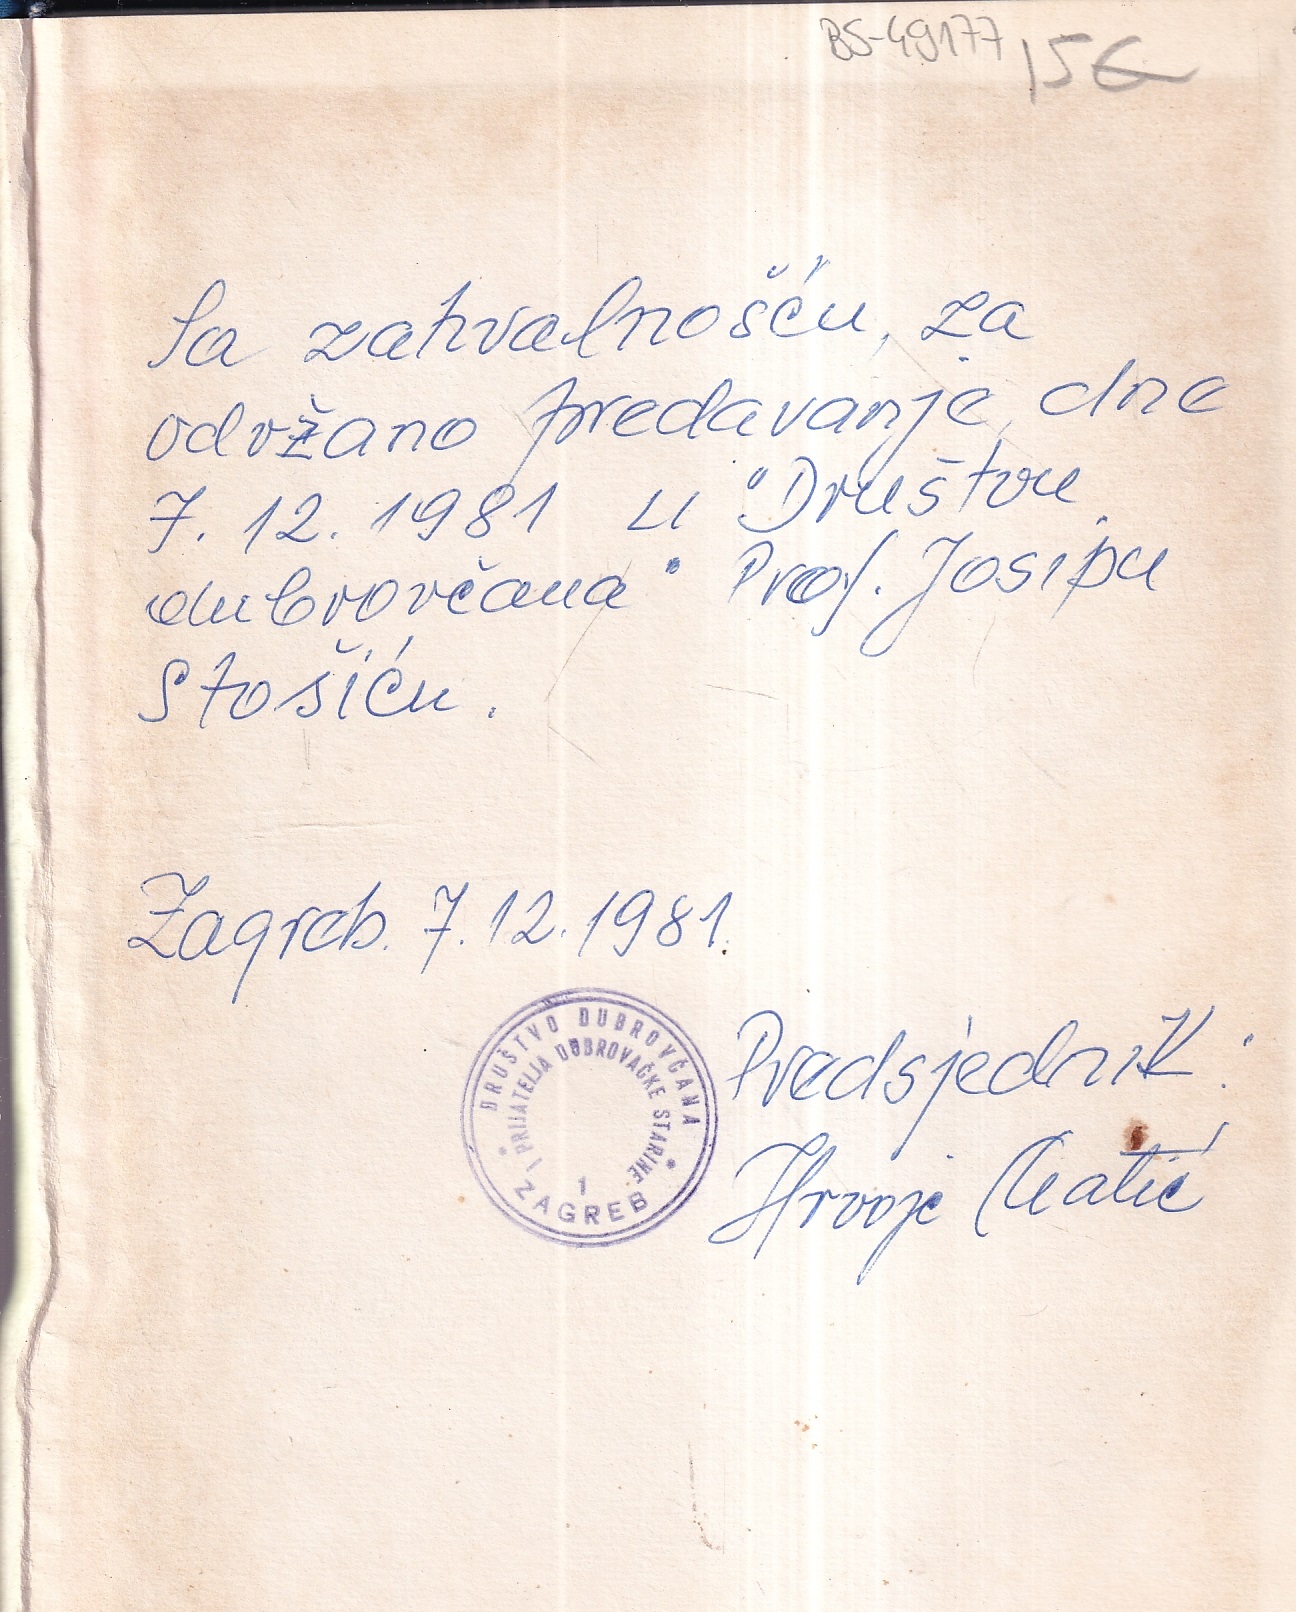 BS-49177 15€
Sa zahvalnošću, za
održano predavanje, dne
7. 12. 1981 u "Društvu
dubrovčana" Prof. Josipu
Stošiću.
Zagreb. 7.12.1981.
DRUŠTVO DUBROVČANA
I PRIJATELJA DUBROVAČKE STARINE
1
ZAGREB
Predsjednik:
Hrvoje Matić